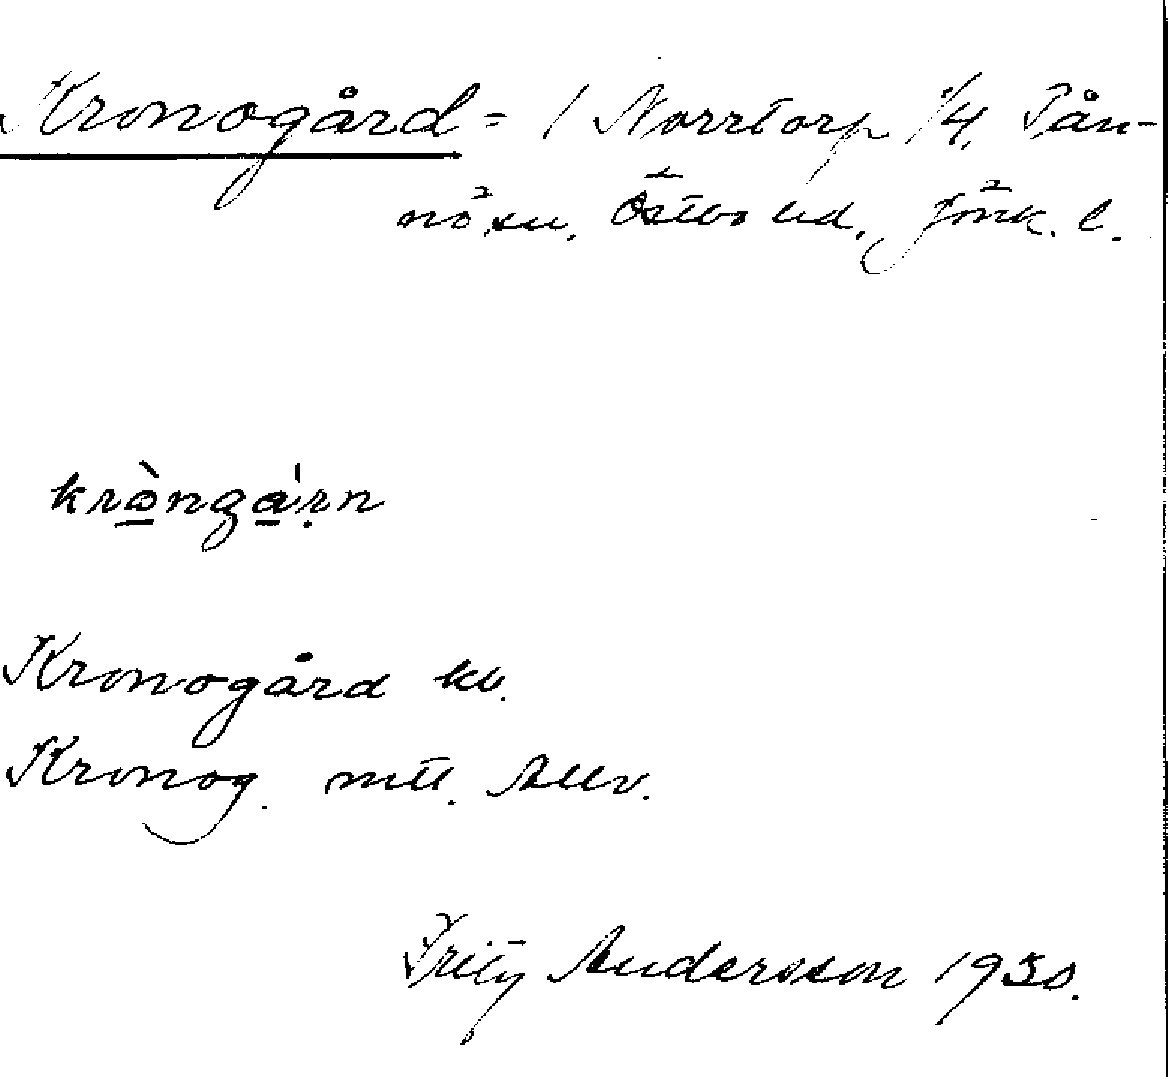 Kronogård = 1 Norrtorp 1/4, Tån-
nö sn, Östbo hd, Jönk. l.
krò̱nga̱'ṛn
Kronogård kv.
Kronog. mtl. Allv.
Fritz Andersson 1930.